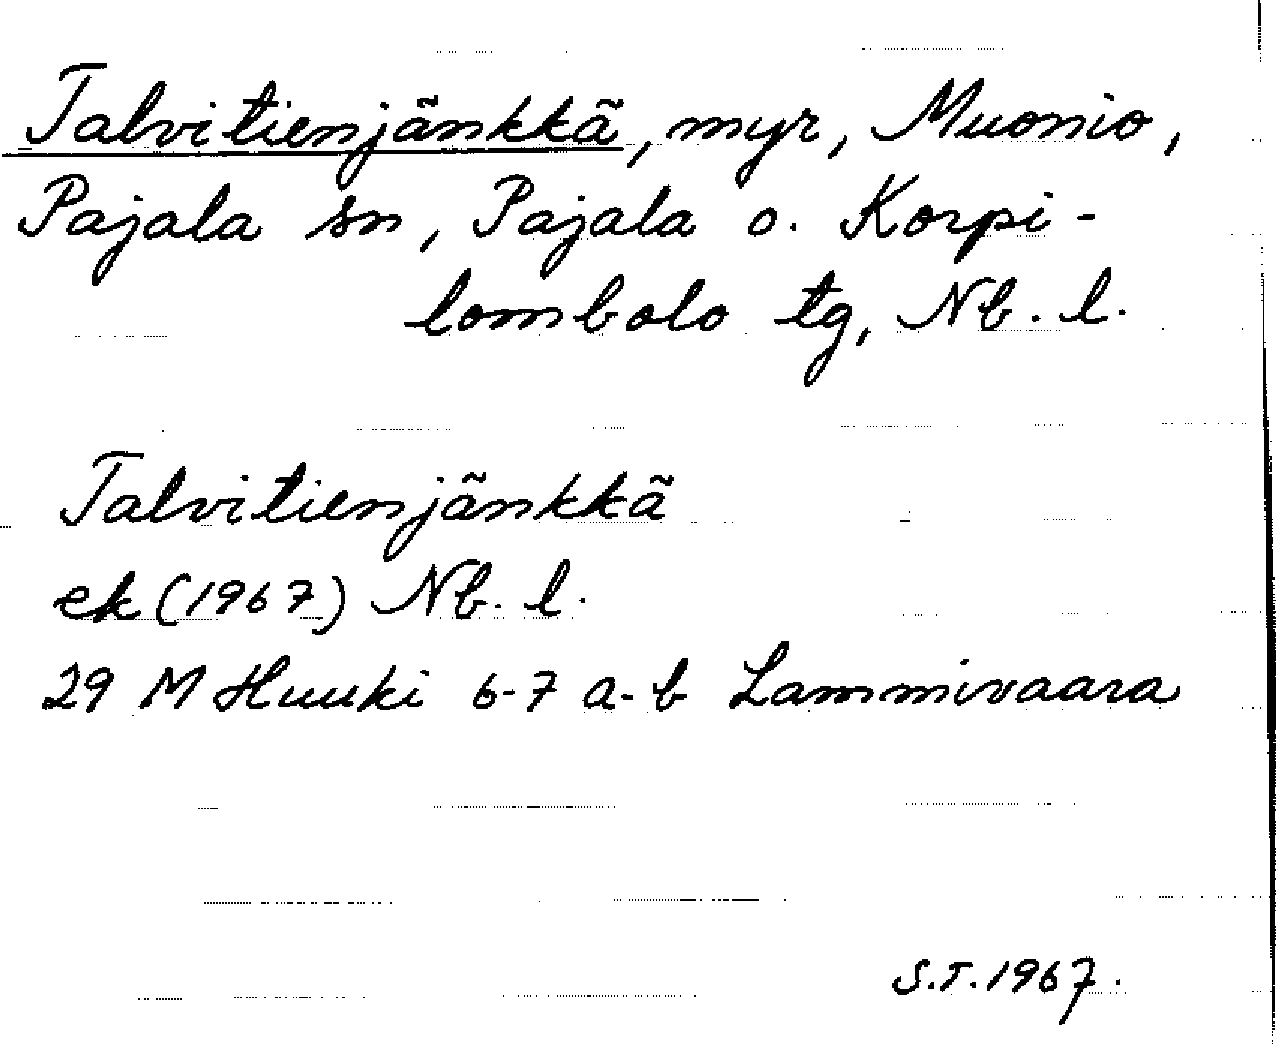 Talvitienjänkkä, myr, Muonio,
Pajala sn, Pajala o. Korpi-
lombolo tg, Nb. l.
Talvitienjänkkä
ek (1967) Nb. l.
29 M Huuki 6-7 a-b Lammivaara
S.T. 1967.